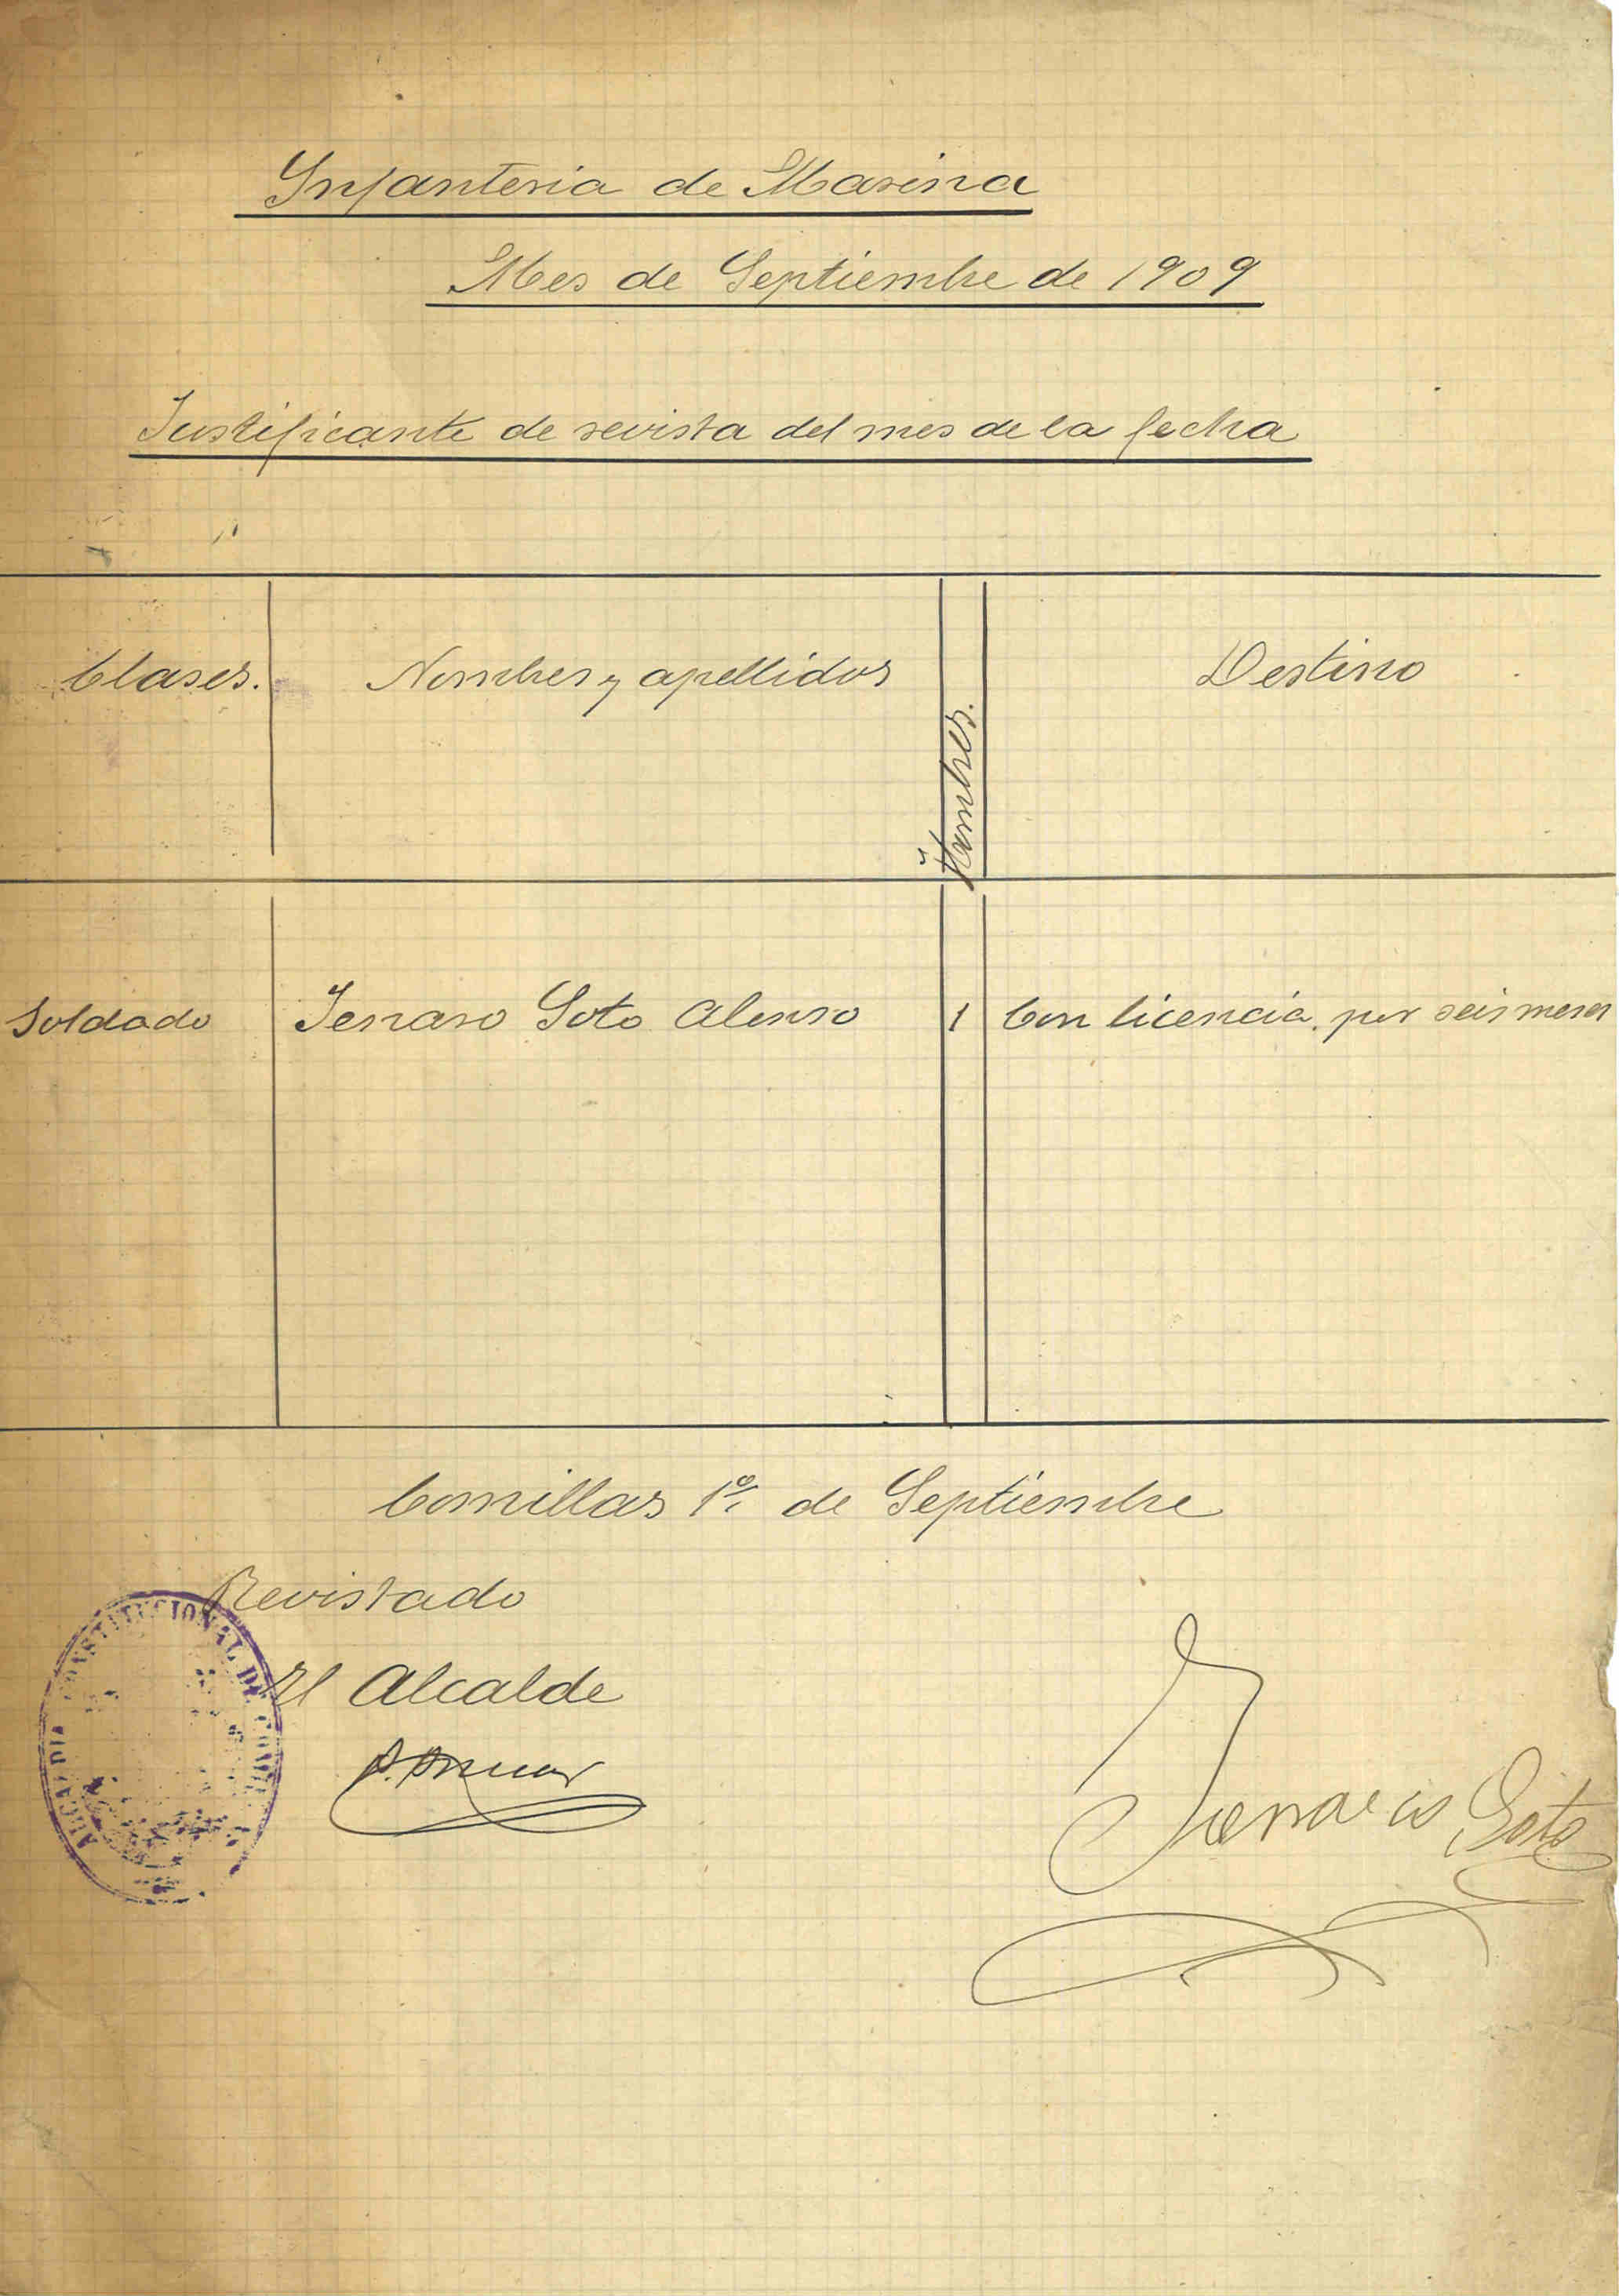 Infanteria de Marina
Mes de Septiembre de 1909
Justificante de revista del mes de la fecha
Clases. Nombres y apellidos Hombres. Destino
Soldado Jenaro Soto Alonso 1 Con licencia por seis meses
Comillas 1º de Septiembre
Revistado
El Alcalde
ALCALDIA CONSTITUCIONAL DE
Jenaro Soto